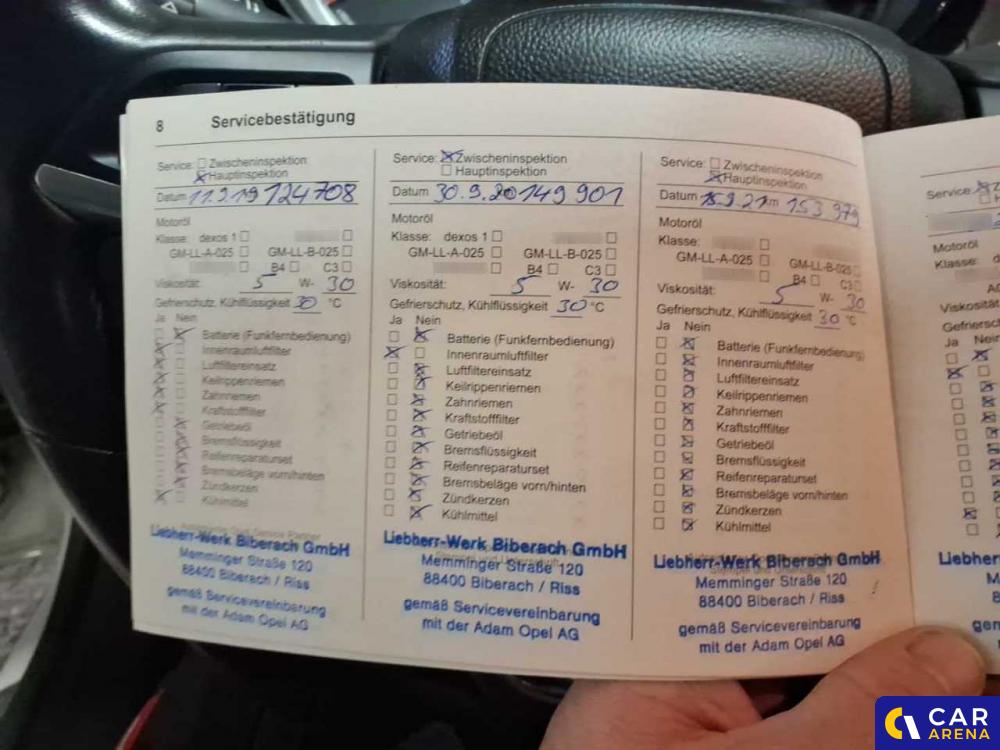 8 Servicebestätigung
Service: Zwischeninspektion
Hauptinspektion
Datum 11.9.19 124708
Motoröl
Klasse: dexos 1
GM-LL-A-025 GM-LL-B-025
B4 C3
Viskosität: 5 W- 30
Gefrierschutz, Kühlflüssigkeit 30 °C
Ja Nein
Batterie (Funkfernbedienung)
Innenraumluftfilter
Luftfiltereinsatz
Keilrippenriemen
Zahnriemen
Kraftstofffilter
Getriebeöl
Bremsflüssigkeit
Reifenreparaturset
Bremsbeläge vorn/hinten
Zündkerzen
Kühlmittel
Liebherr-Werk Biberach GmbH
Memminger Straße 120
88400 Biberach / Riss
gemäß Servicevereinbarung
mit der Adam Opel AG
Service: Zwischeninspektion
Hauptinspektion
Datum 30.9.20 149 901
Motoröl
Klasse: dexos 1
GM-LL-A-025 GM-LL-B-025
B4 C3
Viskosität: 5 W- 30
Gefrierschutz, Kühlflüssigkeit 30 °C
Ja Nein
Batterie (Funkfernbedienung)
Innenraumluftfilter
Luftfiltereinsatz
Keilrippenriemen
Zahnriemen
Kraftstofffilter
Getriebeöl
Bremsflüssigkeit
Reifenreparaturset
Bremsbeläge vorn/hinten
Zündkerzen
Kühlmittel
Liebherr-Werk Biberach GmbH
Memminger Straße 120
88400 Biberach / Riss
gemäß Servicevereinbarung
mit der Adam Opel AG
Service: Zwischeninspektion
Hauptinspektion
Datum 15.9.21 km 153 979
Motoröl
Klasse:
GM-LL-A-025 GM-LL-B-025
B4 C3
Viskosität: 5 W- 30
Gefrierschutz, Kühlflüssigkeit 30 °C
Ja Nein
Batterie (Funkfernbedienung)
Innenraumluftfilter
Luftfiltereinsatz
Keilrippenriemen
Zahnriemen
Kraftstofffilter
Getriebeöl
Bremsflüssigkeit
Reifenreparaturset
Bremsbeläge vorn/hinten
Zündkerzen
Kühlmittel
Liebherr-Werk Biberach GmbH
Memminger Straße 120
88400 Biberach / Riss
gemäß Servicevereinbarung
mit der Adam Opel AG
Service:
Motoröl
Klasse:
Viskosität
Ja
CAR
ARENA